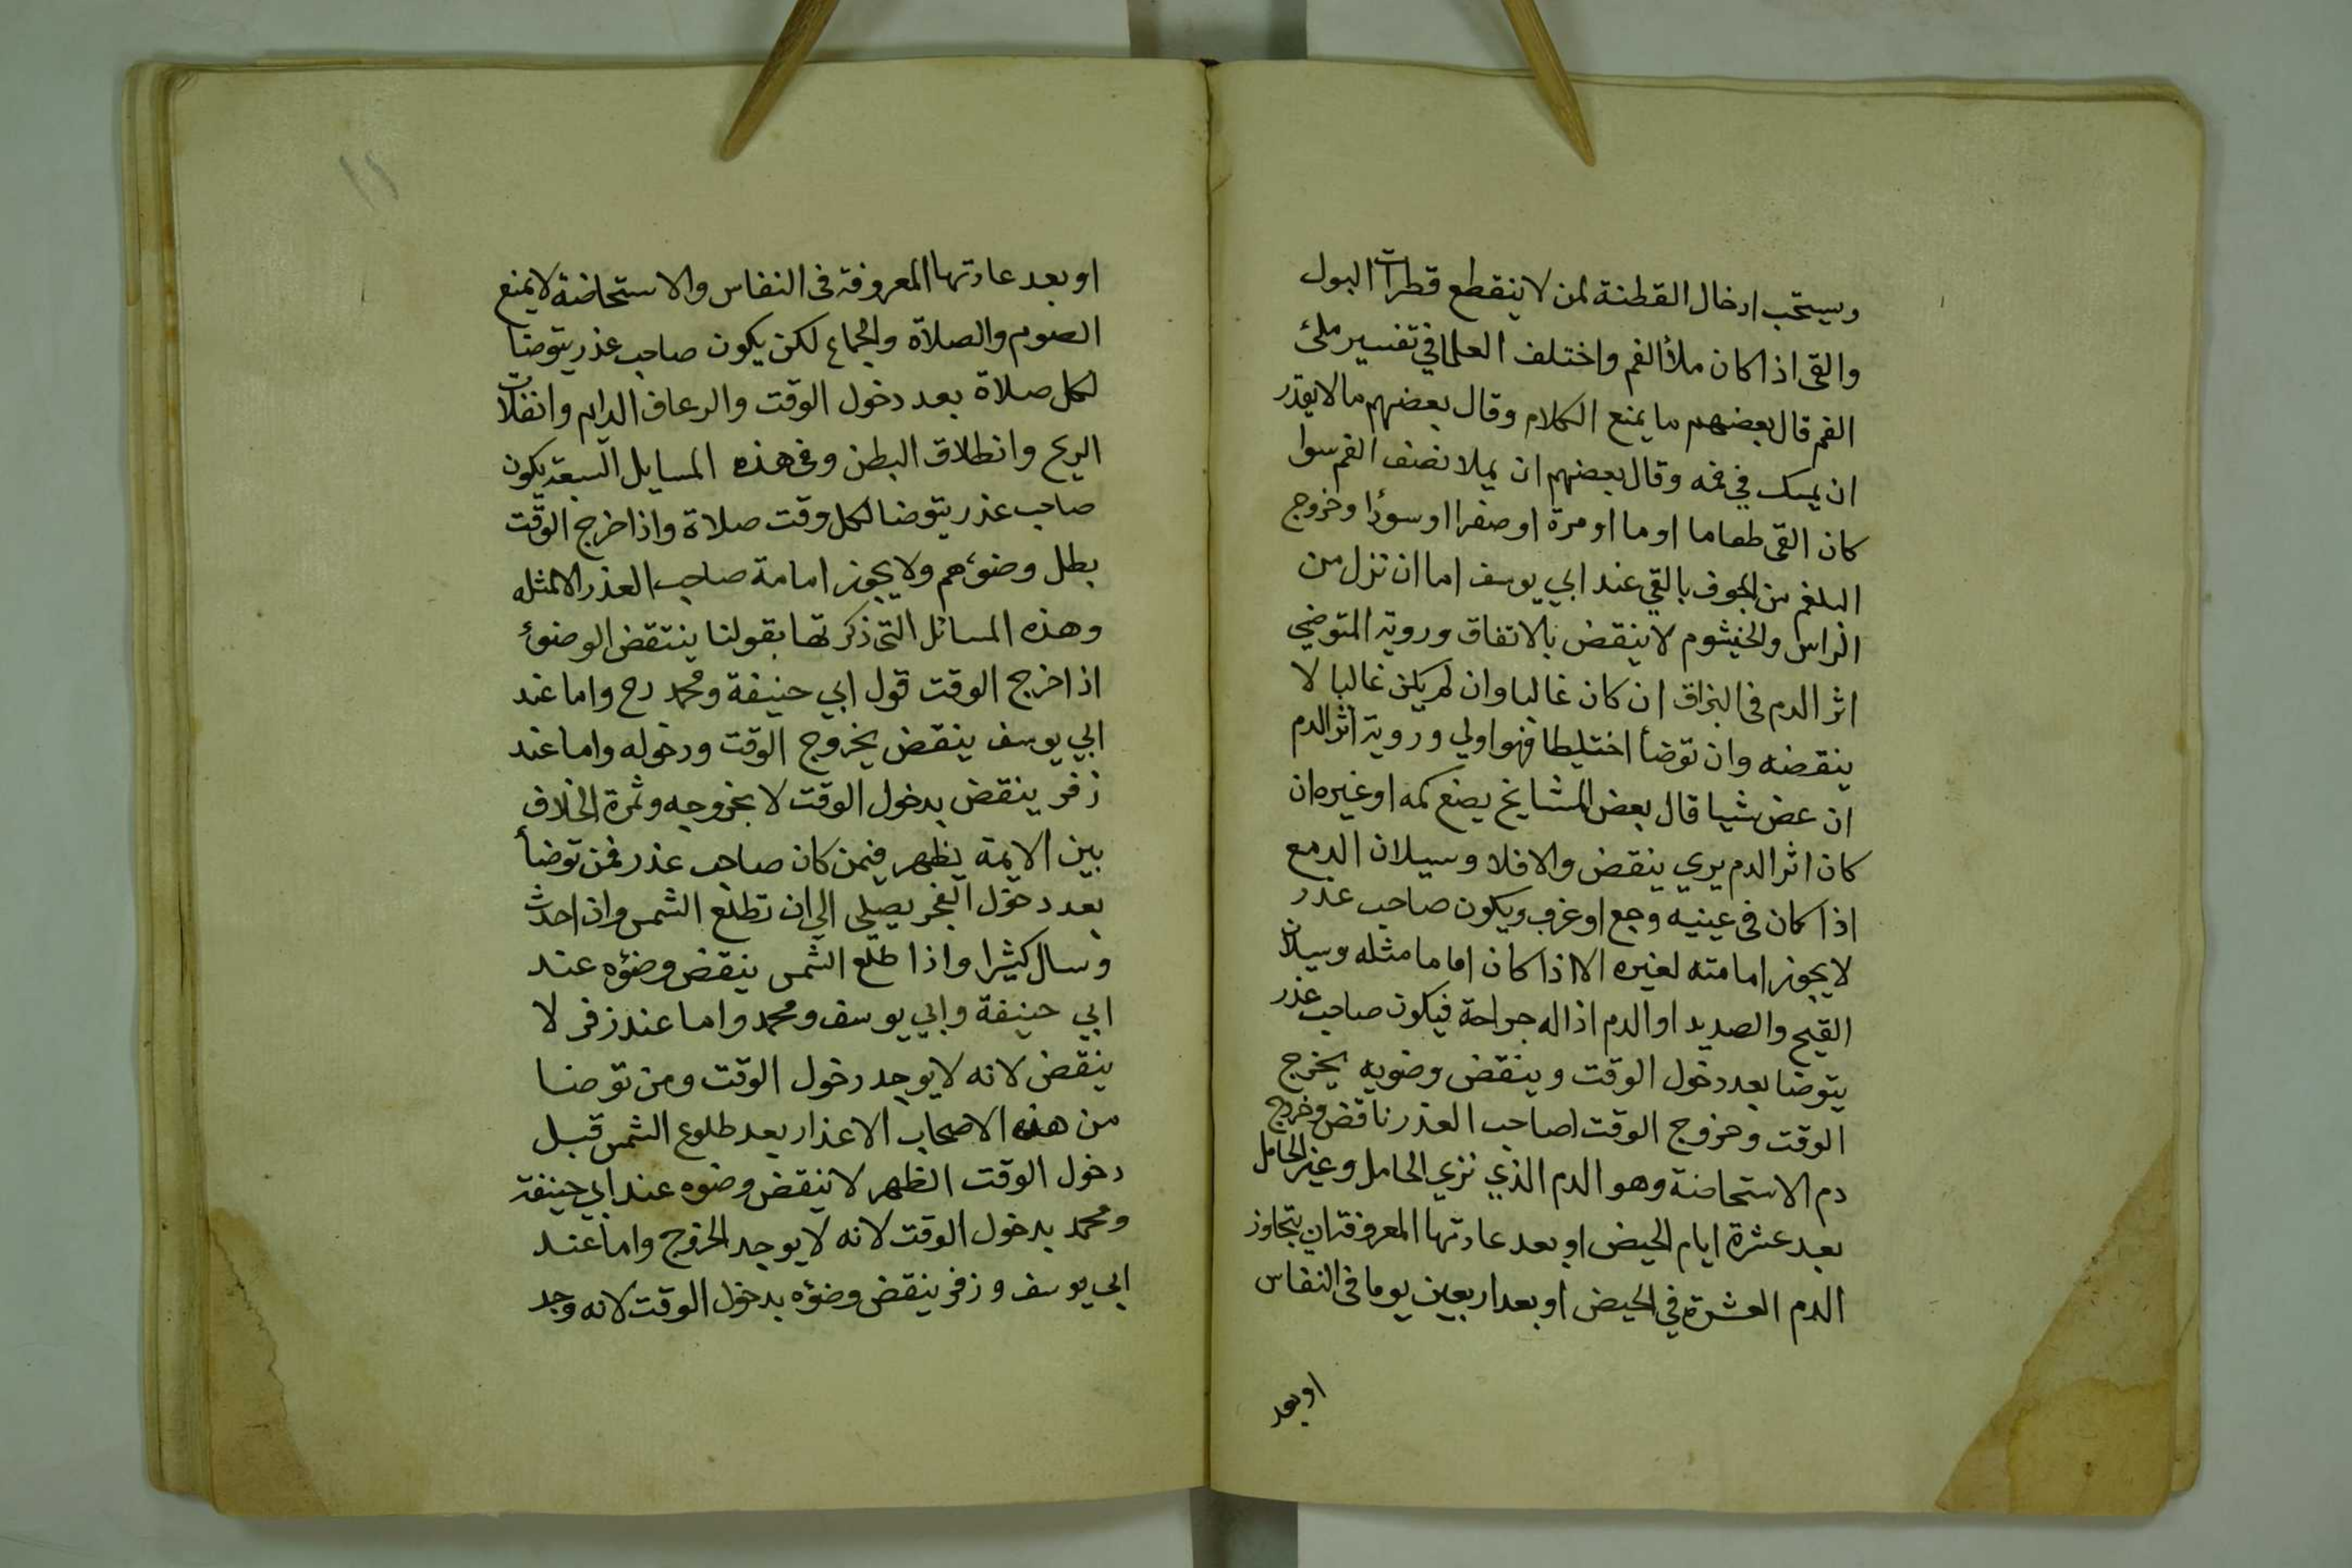 ويستحب ادخال القطنة لمن لا ينقطع قطرات البول
والقى اذا كان ملأ الفم واختلف العلما في تفسير ملئ
الفم قال بعضهم ما يمنع الكلام وقال بعضهم مالا يقدر
ان يمسك في فمه وقال بعضهم ان يملا نصف الفم سوا
كان القى طعاما او ما او مرة او صفرا او سودا وخروج
البلغم من الجوف بالقي عند ابي يوسف اما ان نزل من
الراس والخيشوم لا ينقض بالاتفاق وروية المتوضي
اثر الدم فى البزاق ان كان غالبا وان لم يكن غالبا لا
ينقضه وان توضأ اختيلطا فهو اولي وروية اثر الدم
ان عض شيا قال بعض المشايخ يضع كمه او غيره ان
كان اثر الدم يري ينقض والا فلا وسيلان الدمع
اذا كان فى عينيه وجع او غرب ويكون صاحب عذر
لا يجوز امامته لغيره الا اذا كان اماما مثله وسيلان
القيح والصديد او الدم اذا له جراحة فيكون صاحب عذر
يتوضا بعد دخول الوقت وينقض وضويه بخرج
الوقت وخروج الوقت لصاحب العذر ناقض وخروج
دم الاستحاضة وهو الدم الذي تزي الحامل وغير الحامل
بعد عشرة ايام الحيض او بعد عادتها المعروفة ان يتجاوز
الدم العشرة في الحيض او بعد اربعين يوما فى النفاس
او بعد
١١
او بعد عادتها المعروفة فى النفاس والاستحاضة لا يمنع
الصوم والصلاة والجماع لكن يكون صاحب عذر يتوضا
لكل صلاة بعد دخول الوقت والرعاف الدايم وانفلات
الريح وانطلاق البطن وفى هذه المسايل السبعة يكون
صاحب عذر يتوضا لكل وقت صلاة واذا خرج الوقت
بطل وضوءهم ولا يجوز امامة صاحب العذر الا لمثله
وهذه المسائل التى ذكرتها بقولنا ينتقض الوضوء
اذا خرج الوقت قول ابي حنيفة ومحمد رح واما عند
ابي يوسف ينقض بخروج الوقت ودخوله واما عند
زفر ينقض بدخول الوقت لا بخروجه وثمرة الخلاف
بين الايمة يظهر فيمن كان صاحب عذر فمن توضأ
بعد دخول الفجر يصلى الى ان تطلع الشمس وان احدث
وسال كثيرا واذا طلع الشمس ينقض وضؤه عند
ابي حنيفة وابي يوسف ومحمد واما عند زفر لا
ينقض لانه لا يوجد دخول الوقت ومن توضا
من هذه الاصحاب الاعذار بعد طلوع الشمس قبل
دخول الوقت الظهر لا ينقض وضوه عند ابي حنيفة
ومحمد بدخول الوقت لانه لا يوجد الخروج واما عند
ابي يوسف وزفر ينقض وضؤه بدخول الوقت لانه وجد